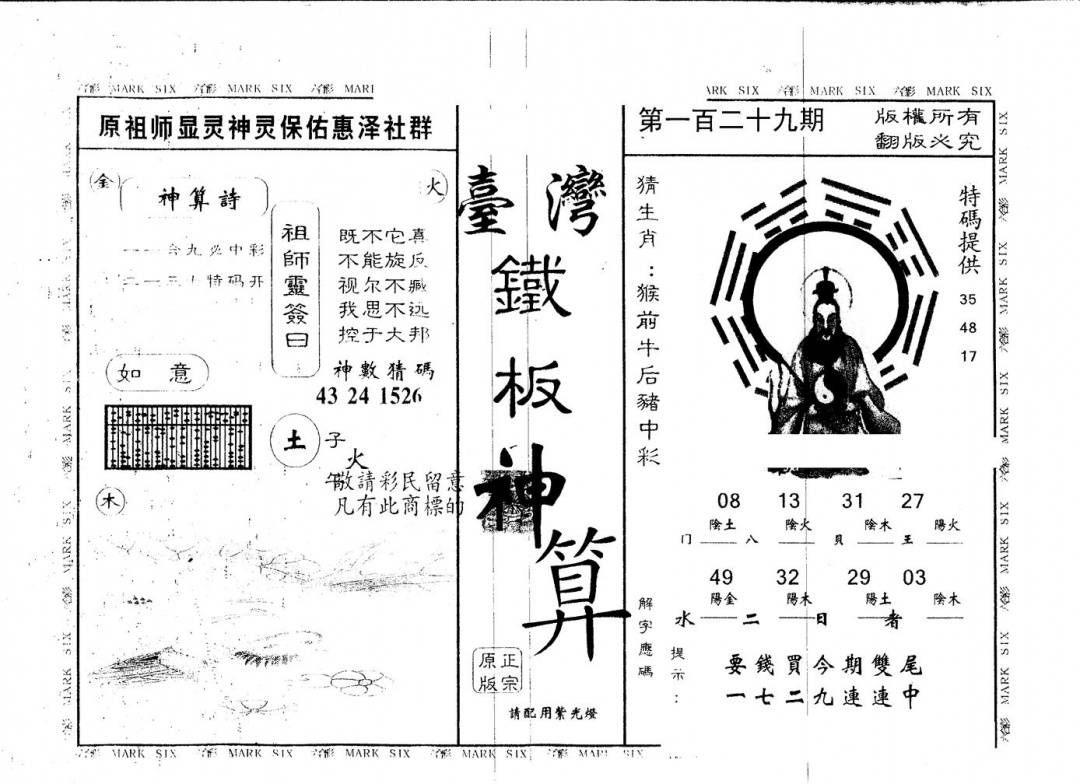 MARK SIX MARK SIX
原祖师显灵神灵保佑惠泽社群
金
火
神算詩
九必中彩
特码开
祖師靈簽曰
既不它真
不能旋反
视尔不臧
我思不远
控于大邦
神數猜碼
43 24 1526
如意
土
子
火
午敬請彩民留意
凡有此商標的
木
臺灣
鐵板神算
正宗
原版
請配用紫光燈
MARK SIX MARK SIX
第一百二十九期
版權所有
翻版必究
猜生肖：猴前牛后豬中彩
特碼提供
35
48
17
08 13 31 27
陰土 陰火 陰木 陽火
门 八 貝 王
49 32 29 03
陽金 陽木 陽土 陰木
水 二 日 者
解字應碼
提示：
要錢買今期雙尾
一七二九連連中
MARK SIX MARK SIX MARK SIX